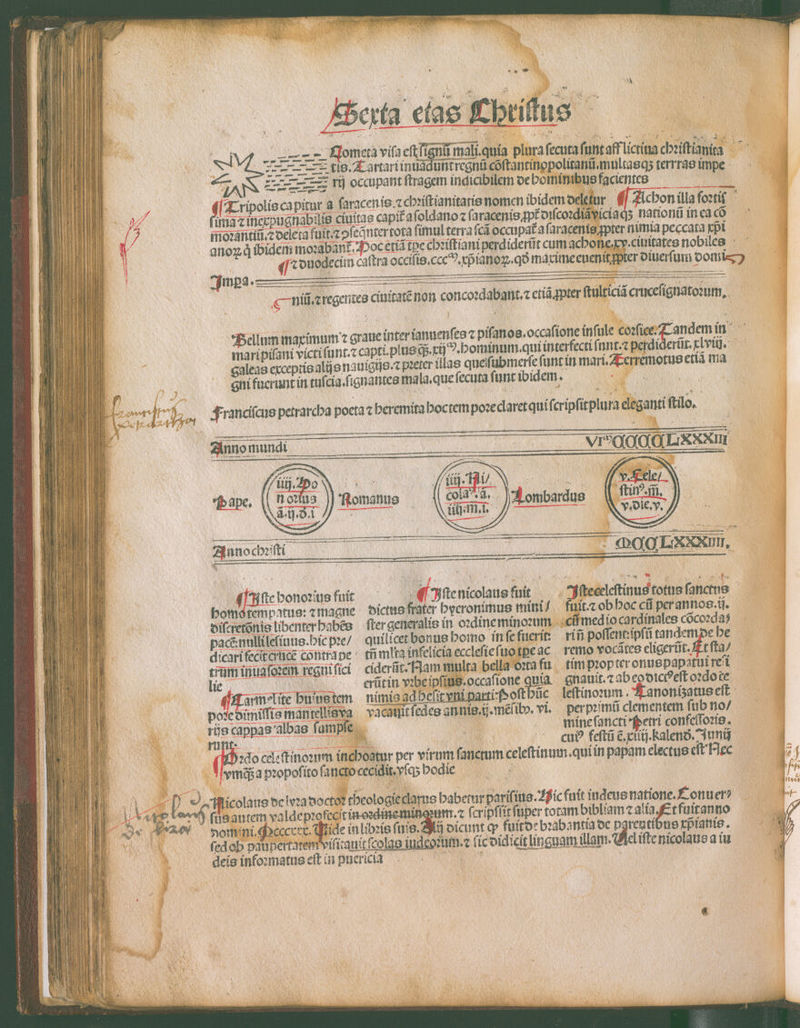 Sexta etas Christus
Cometa visa est signũ mali. quia plura secuta sunt afflictiua christianita
tis. Tartari inuadunt regnũ cõstantinopolitanũ. multasqꝫ terrras impe
rij occupant stragem indicibilem de hominibus facientes
¶ Tripolis capitur a saracenis. ⁊ christianitatis nomen ibidem deletur ¶ Achon illa fortis
sima ⁊ inexpugnabilis ciuitas capit᷑ a soldano ⁊ saracenis, ꝓpt᷑ discordiã
morantiũ. ⁊ deleta fuit. ⁊ ꝯseq̃nter tota simul terra scã occupat᷑ a saracenis, ꝓpter nimia peccata xp̃i
anoꝝ q̃ ibidem morabant᷑. Hoc etiã tp̃e christiani perdiderũt cum achone. xv. ciuitates nobiles
¶ ⁊ duodecim castra occisis. ccc. xp̃ianoꝝ. qd̃ maxime euenit ꝓpter diuersum domi
Impa.
niũ. ⁊ regentes ciuitatẽ non concordabant. ⁊ etiã ꝓpter stulticiã crucesignatorum.
Bellum maximum ⁊ graue inter ianuenses ⁊ pisanos. occasione insule corsice. Tandem in
mari pisani victi sunt. ⁊ capti. plus q̃ꝫ. xij. hominum. qui interfecti snnt. ⁊ perdiderũt. xlviij.
galeas exceptis alijs nauigijs. ⁊ preter illas que submerse sunt in mari. Terremotus etiã ma
gni fuerunt in tuscia. signantes mala. que secuta sunt ibidem.
Franciscus petrarcha poeta ⁊ heremita hoc tempore claret qui scripsit plura eleganti stilo.
Franciscus
Anno mundi VI CCCC LXXXIII
Pape. iiij. Ho
norius
ã. ij. d. i Romanus iiij. Ni
colaꝰ. a.
iiij. m. i. Lombardus v. Cele
stinꝰ. m̃.
v. die. v.
Anno christi MCC LXXXIIII.
¶ Iste honorius fuit
homo temparus: ⁊ magne
discretõnis libenter habẽs
pacẽ: nulli lesiuus. hic pre
dicari fecit crucẽ contra pe
trum inuasorem regni sici
lie
¶ Carmelite huius tem
pore dimissis mantellis va
rijs cappas albas sumpse
runt.
¶ Iste nicolaus fuit
dictus frater hyeronimus mini
ster generalis in ordine minorum
qui licet bonus homo in se fuerit:
tñ ml̃ta infelicia ecclesie suo tp̃e ac
ciderũt. Nam multa bella orta fu
erũt in vrbe ipsius. occasione quia
nimis adhesit vni parti. Post hũc
vacauit sedes annis. ij. mẽsibꝰ. vi.
Iste celestinus totus sanctus
fuit. ⁊ ob hoc cũ per annos. ij.
cũ medio cardinales cõcorda
ri ñ possent: ipsũ tandem de he
remo vocãtes eligerũt. Et sta
tim propter onus papatui resi
gnauit. ⁊ ab eo dicꝰ est ordo ce
lestinorum. Canonizatus est
per primũ clementem sub no
mine sancti Petri confessoris.
cuiꝰ festũ ẽ. xiiij. kalend. Iunij
¶ Ordo celestinorum inchoatur per virum sanctum celestinum. qui in papam electus est Nec
vmq̃ꝫ a proposito sancto cecidit. vsqꝫ hodie
Nicolaus de lyra doctor theologie clarus habetur parisius. Hic fuit iudeus natione. Conuer
sus autem valde profecit in ordine minorum. ⁊ scripsit super totam bibliam ⁊ alia. Et fuit anno
domini. Mcccxxx. Vide in libris suis. Alij dicunt ꝙ fuit de brabantia de parentibus xp̃ianis.
sed ob paupertatem visitauit scolas iudeorum. ⁊ sic didicit linguam illam. Vel iste nicolaus a iu
deis informatus est in puericia
Nicolaus
de lyra